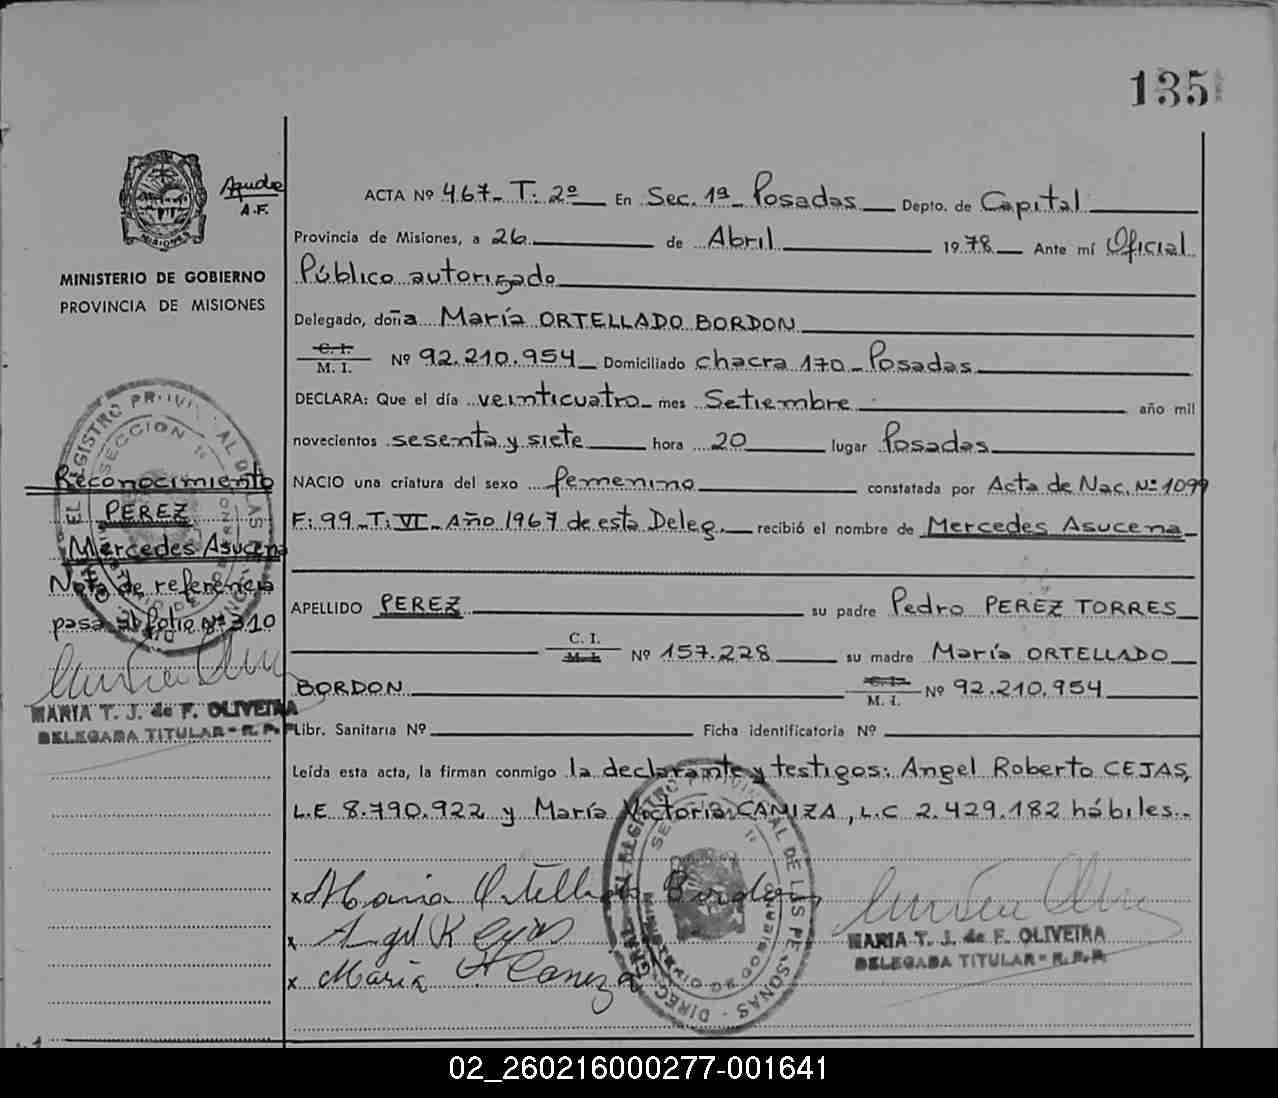 135
Ayude
A.F.
MINISTERIO DE GOBIERNO
PROVINCIA DE MISIONES
ACTA Nº 467- T: 2º En Sec. 1ª- Posadas Depto. de Capital
Provincia de Misiones, a 26 de Abril 1978 Ante mí Oficial
Público autorizado
Delegado, doña María ORTELLADO BORDON
C. I.
M. I. Nº 92.210.954 Domiciliado chacra 170- Posadas
DECLARA: Que el día veinticuatro mes Setiembre año mil
novecientos sesenta y siete hora 20 lugar Posadas
NACIO una criatura del sexo femenino constatada por Acta de Nac. Nº 1099
F: 99- T: VI- Año 1967 de esta Deleg. recibió el nombre de Mercedes Asucena
APELLIDO PEREZ su padre Pedro PEREZ TORRES
C. I.
M. I. Nº 157.228 su madre María ORTELLADO
BORDON C. I.
M. I. Nº 92.210.954
Libr. Sanitaria Nº Ficha identificatoria Nº
Leída esta acta, la firman conmigo la declarante y testigos: Angel Roberto CEJAS,
L.E 8.790.922 y María Victoria CANIZA, L.C 2.429.182 hábiles.
x Maria Ortellado Bordon
x Angel R Cejas
x Maria V Caniza
MARIA T. J. de F. OLIVEIRA
DELEGADA TITULAR - R.P.P
Reconocimiento
PEREZ
Mercedes Asucena
Nota de referencia
pasa al folio Nº 310
MARIA T. J. de F. OLIVEIRA
DELEGADA TITULAR - R.P.P
02_260216000277-001641